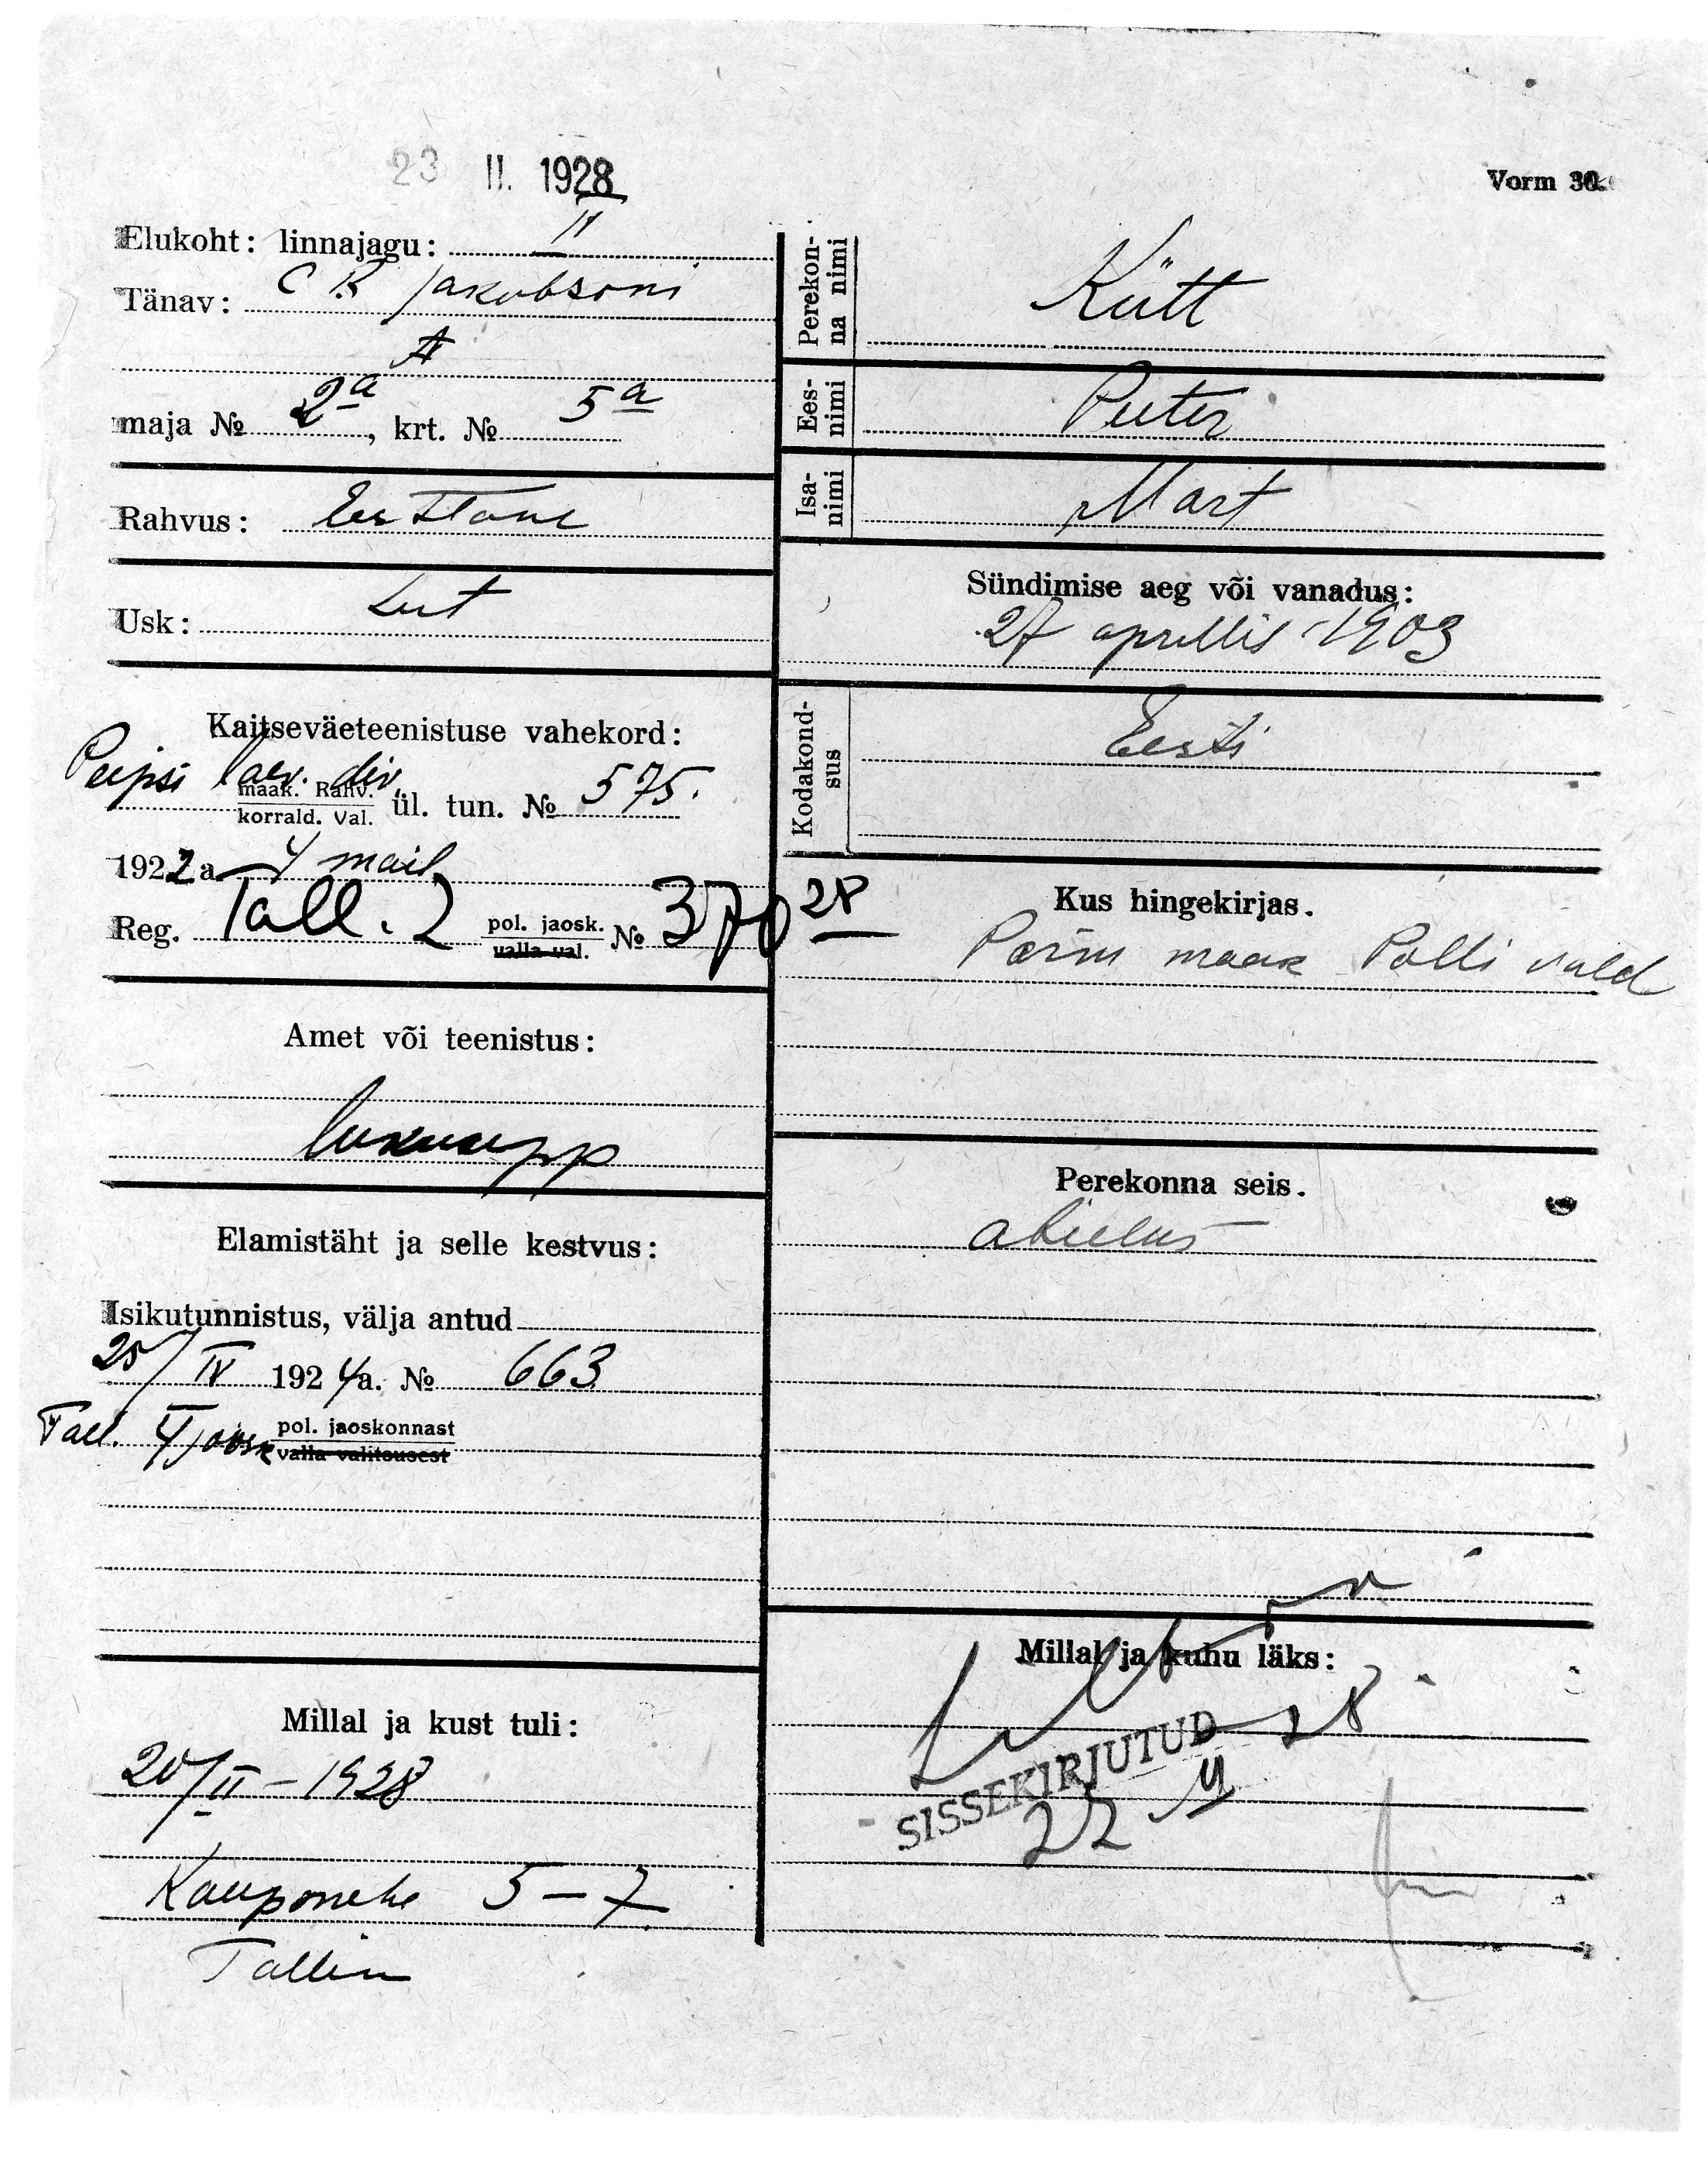 23 II. 1928
Vorm 30.
Elukoht: linnajagu: II
Tänav: C R Jakobsoni
t
maja № 2a, krt. № 5a
Rahvus: Eestlane
Usk: Lut
Kaitseväeteenistuse vahekord:
Peipsi laev. div.
maak. Rahv.
korrald. Val. ül. tun. № 575.
1922 a 4 mail
Reg. Tall. 2 pol. jaosk. № 370 28
valla val.
Amet või teenistus:
lukusepp
Elamistäht ja selle kestvus:
Isikutunnistus, välja antud
25/IV 1924 a. № 663
Tall. jaosk pol. jaoskonnast
valla valitsusest
Millal ja kust tuli:
20/II-1928
5-7
Tallin
Perekon-
na nimi
Kütt
Ees-
nimi
Peeter
Isa-
nimi
Mart
Sündimise aeg või vanadus:
27 aprillis 1903
Kodakond-
sus
Eesti
Kus hingekirjas.
Pärnu maak Polli vald
Perekonna seis.
abielus
Millal ja kuhu läks:
28
SISSEKIRJUTUD
22 II